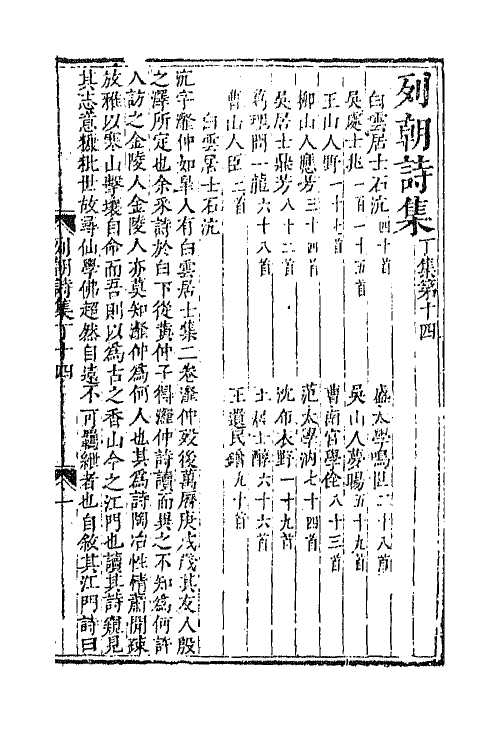 列朝詩集丁集第十四
白雲居士石沆四十首　盛太學鳴世二十八首
吳處士兆一百一十五首　吳山人夢暘五十九首
王山人野一十七首　曹南宮學佺八十三首
柳山人應芳三十四首　范太學汭七十四首
吳居士鼎芳八十二首　沈布衣野一十九首
葛理問一龍六十八首　王居士醇六十六首
曹山人臣二首　王遺民鏳九十首
白雲居士石沆
沆字瀣仲如皐人有白雲居士集二卷瀣仲歿後萬曆庚戌歲其友人殷
之澤所定也余采詩於白下從黃仲子得瀣仲詩讀而異之不知爲何許
人訪之金陵人金陵人亦莫知瀣仲爲何人也其爲詩陶冶性情蕭閒疎
放雅以寒山擊壤自命而吾則以爲古之香山今之江門也讀其詩窺見
其志意糠粃世故尋仙學佛超然自遠不可羈紲者也自敘其江門詩曰
列朝詩集丁十四
一